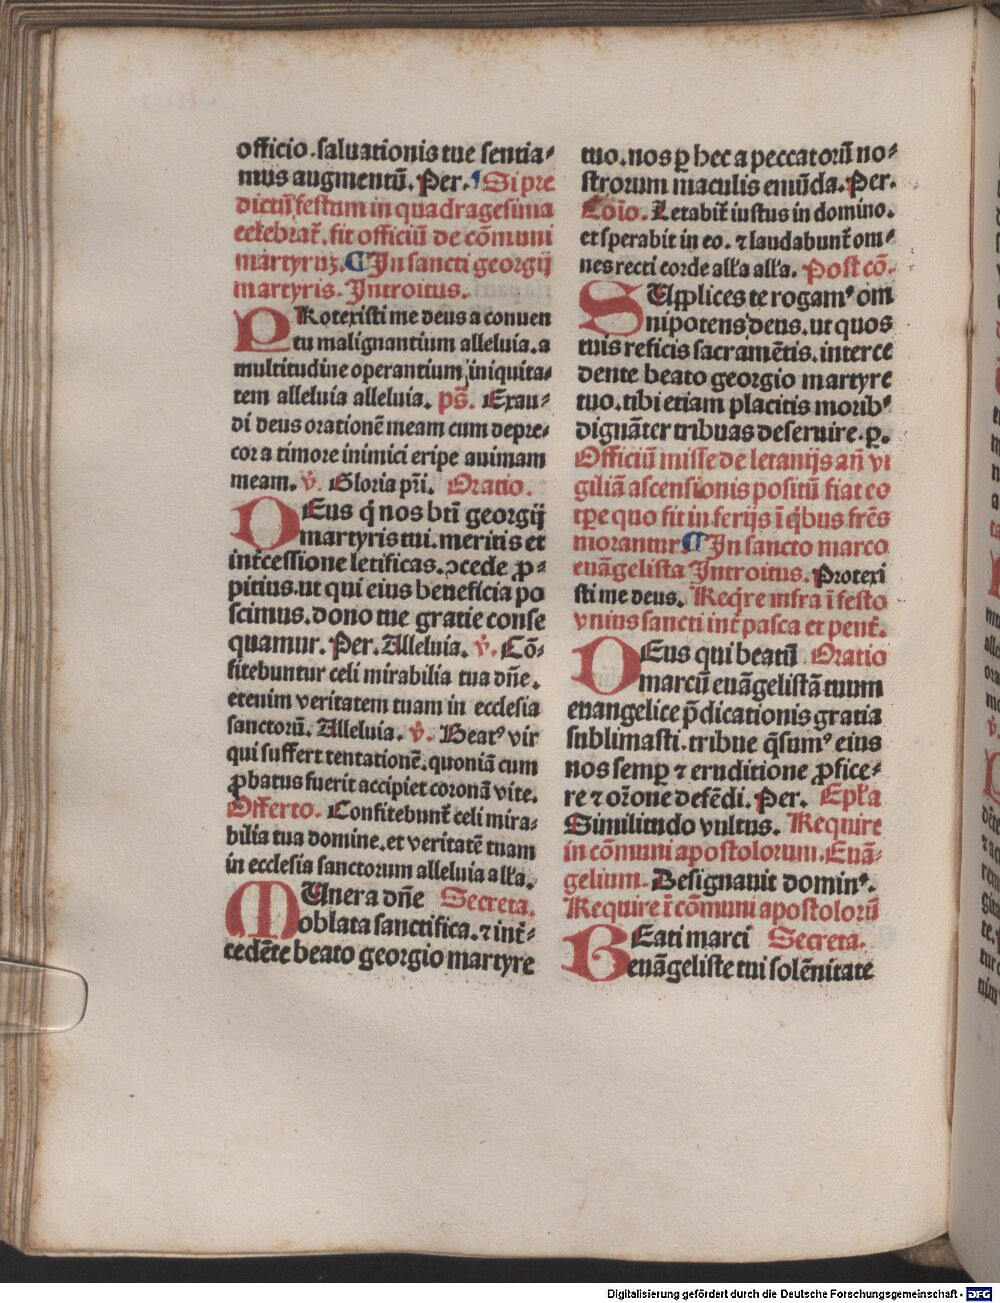 officio. saluationis tue sentia⸗
mus augmentū. Per. ¶ Si pre
dictū festum in quadragesima
celebrat̄. fit officiū de cōmuni
martyruꝫ. ¶ In sancti georgij
martyris. Introitus.
PRotexisti me deus a conuen
tu malignantium alleluia. a
multitudine operantium iniquita⸗
tem alleluia alleluia. ps̄. Exau⸗
di deus orationē meam cum depre⸗
cor a timore inimici eripe animam
meam. v̄. Gloria pr̄i. Oratio.
DEus q̇ nos bt̄i georgij
martyris tui. meritis et
int̄cessione letificas. ꝯcede ꝓ⸗
pitius. ut qui eius beneficia po
scimus. dono tue gratie conse
quamur. Per. Alleluia. v̄. Cō⸗
fitebuntur celi mirabilia tua dn̄e.
etenim veritatem tuam in ecclesia
sanctorū. Alleluia. v̄. Beatꝰ vir
qui suffert tentationē. quoniā cum
ꝓbatus fuerit accipiet coronā vite.
Offerto. Confitebunt̄ celi mira⸗
bilia tua domine. et veritatē tuam
in ecclesia sanctorum alleluia alľa.
MUnera dn̄e Secreta.
oblata sanctifica. ⁊ int̄⸗
cedēte beato georgio martyre
tuo. nos ꝑ hec a peccatorū no⸗
strorum maculis emūda. Per.
Cōio. Letabit̄ iustus in domino.
et sperabit in eo. ⁊ laudabunt̄ om⸗
nes recti corde alľa alľa. Post cō.
SUpplices te rogamꝰ om
nipotens deus. ut quos
tuis reficis sacramētis. interce
dente beato georgio martyre
tuo. tibi etiam placitis moribꝰ
dignāter tribuas deseruire. ꝑ.
Officiū misse de letanijs an̄ vi
giliā ascensionis positū fiat eo
tꝑe quo fit in ferijs ī q̇bus fr̄es
morantur ¶ In sancto marco
euāgelista Introitus. Protexi
sti me deus. Req̇re infra ī festo
vnius sancti int̄ pasca et pent̄.
DEus qui beatū Oratio
marcū euāgelistā tuum
euangelice p̄dicationis gratia
sublimasti. tribue q̄sumꝰ eius
nos semꝑ ⁊ eruditione ꝓfice⸗
re ⁊ or̄one defēdi. Per. Epľa
Similitudo vultus. Require
in cōmuni apostolorum. Euā⸗
gelium. Designauit dominꝰ.
Require ī cōmuni apostolorū
BEati marci Secreta.
euāgeliste tui solēnitate
Digitalisierung gefördert durch die Deutsche Forschungsgemeinschaft - DFG